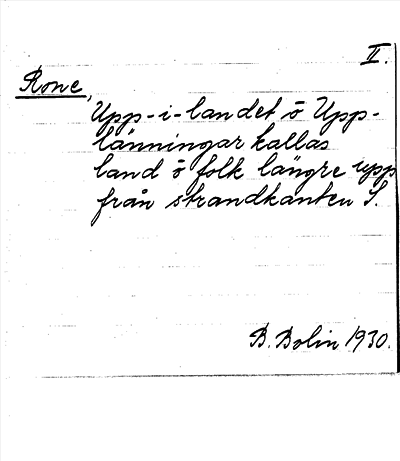 II.
Rone,
Upp-i-landet ō Upp-
länningar kallas
land ō folk längre upp
från strandkanten S.
B. Bolin 1930.